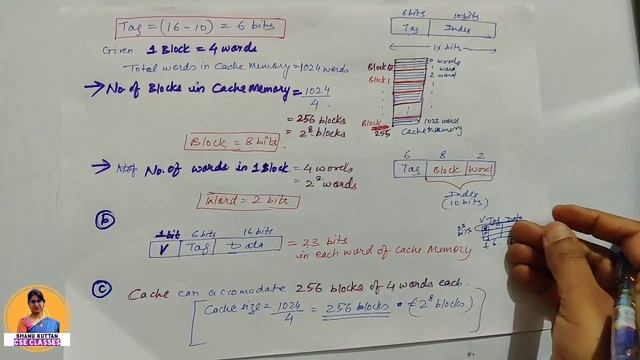 Tag = (16 - 10) = 6 bits
Given 1 Block = 4 words
Total words in Cache Memory = 1024 words
→ No. of Blocks in Cache Memory = 1024/4
= 256 blocks
= 2^8 blocks
Block = 8 bits
→ No. of words in 1 Block = 4 words
= 2^2 words
Word = 2 bits
6bits 10bits
Tag Index
16 bits
Block 0
Block 1
Block 255
0 word
1 word
2 word
1023 word
Cache Memory
6 8 2
Tag Block Word
Index
(10 bits)
b
1 bit 6 bits 16 bits
V Tag Data = 23 bits
in each word of cache Memory
V Tag Data
23 bits
1 6
c Cache can accomodate 256 blocks of 4 words each.
[Cache size = 1024/4 = 256 blocks = (2^8 blocks)]
BHANU KUTTAN
CSE CLASSES